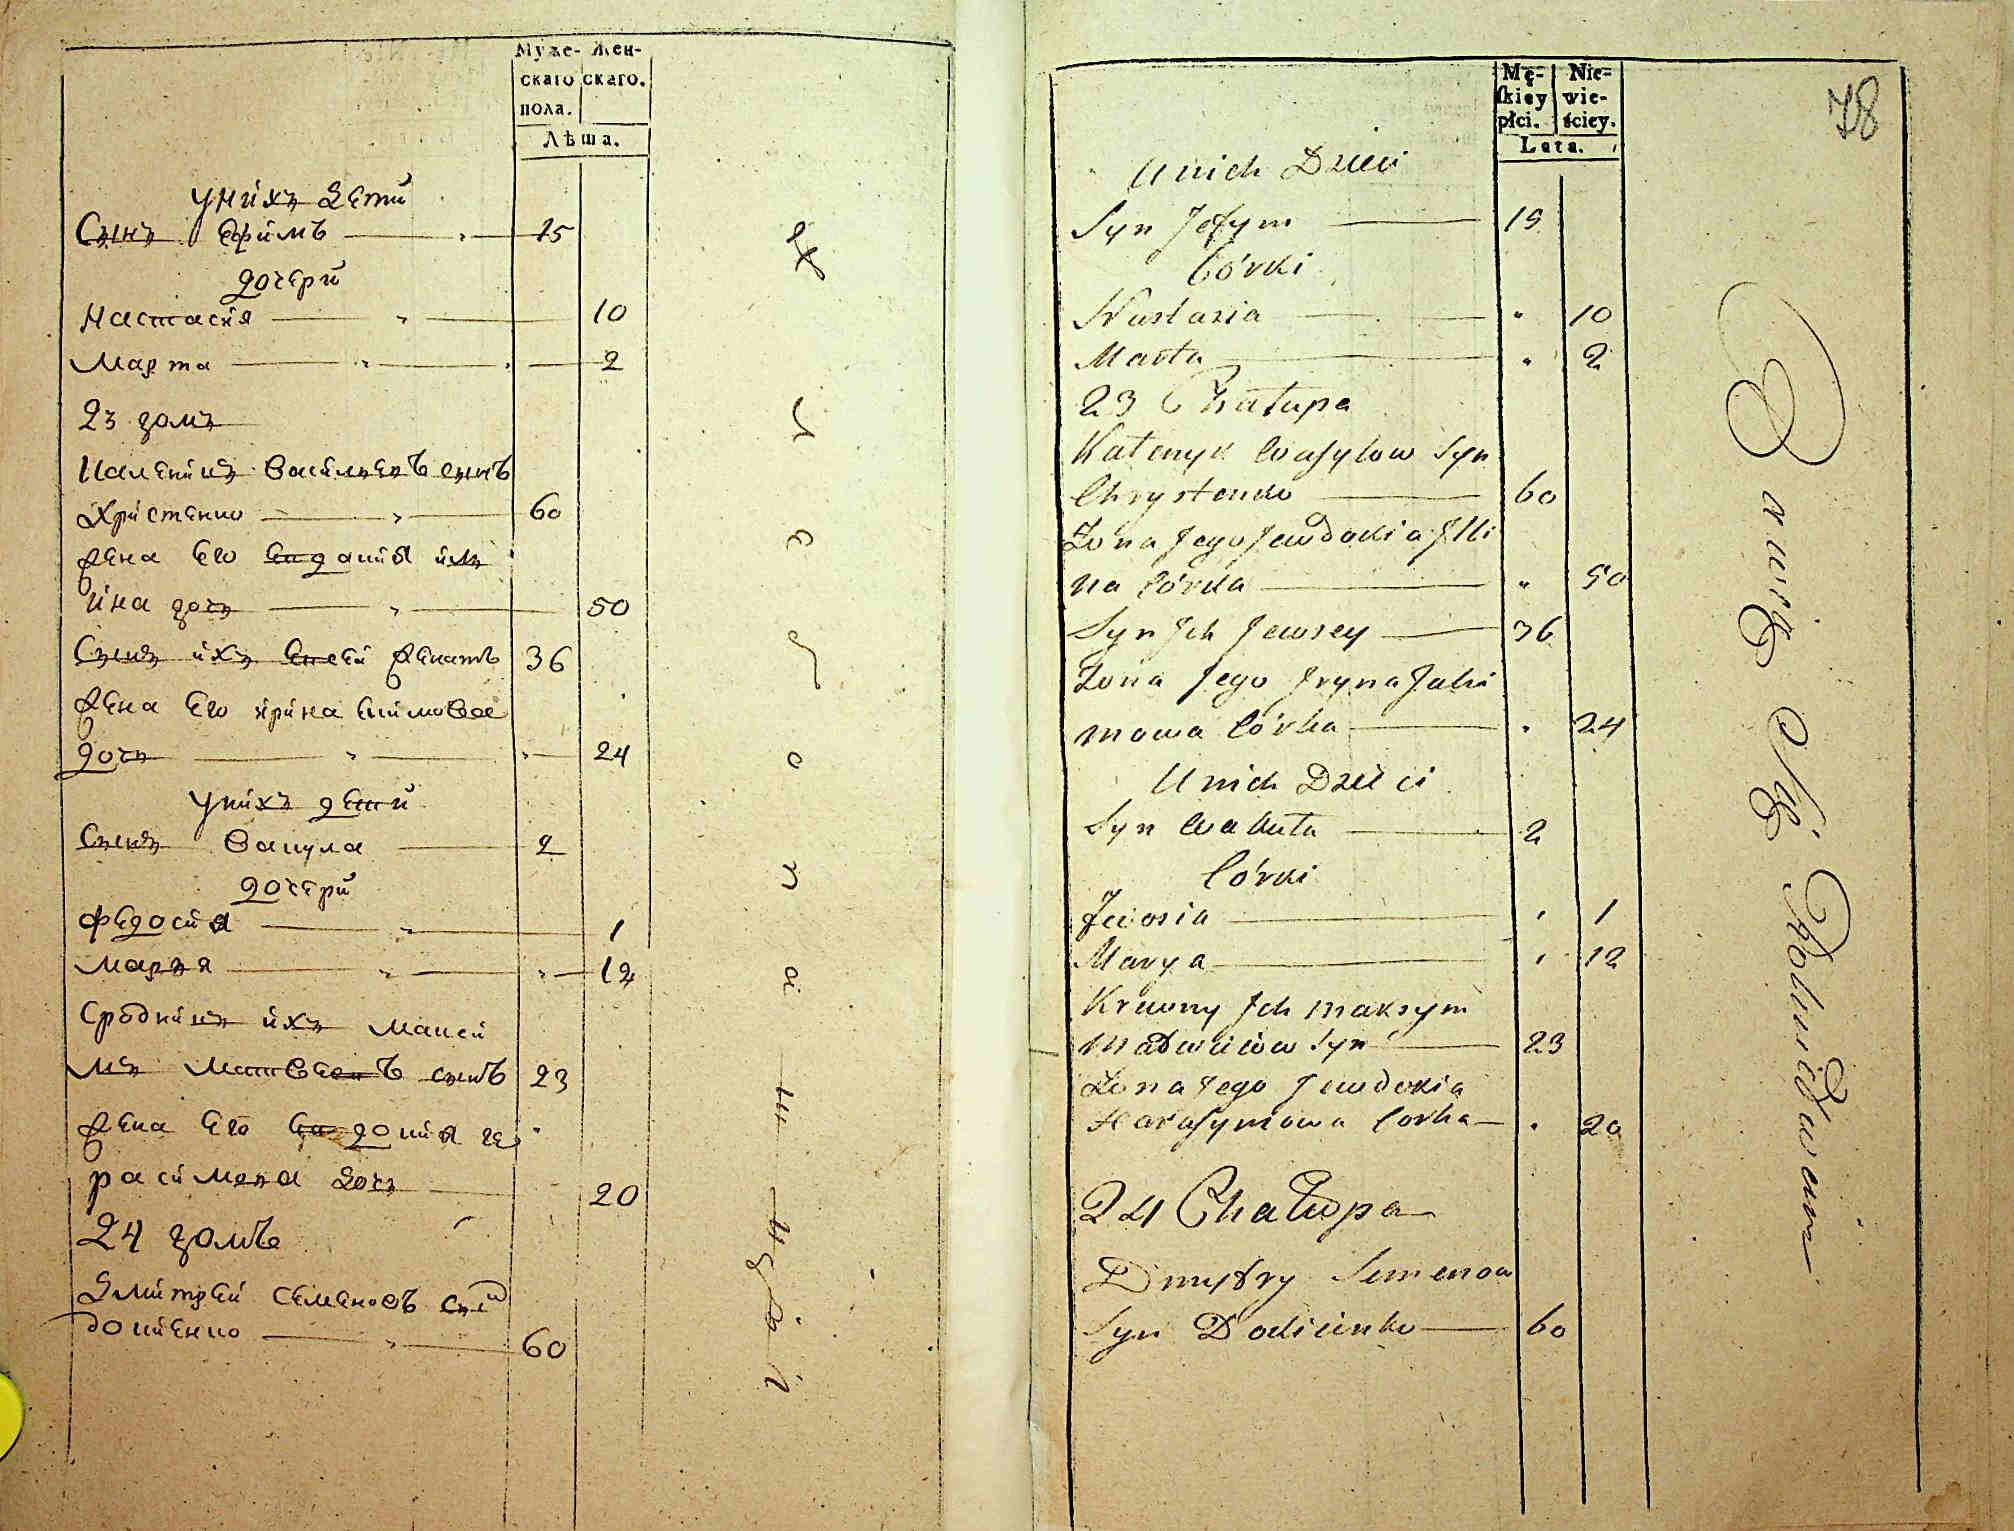 Муже- Жен-
скаго скаго.
пола.
Лѣта.
у нихъ дети
Сынъ Ефимъ 15
дочери
Настасия 10
Марта 2
23 домъ
Калиникъ Василиевъ сынъ
Христенко 60
Жена его Евдокия Иль
ина дочь 50
Сынъ ихъ Евсей Женатъ 36
Жена его Ирина Екимова
дочь 24
у нихъ дети
Сынъ Вакула 2
дочери
Федосия 1
Марья 12
Сродникъ ихъ Макси
мъ Матвеевъ сынъ 23
Жена его Евдокия Ге
расимова дочь 20
24 домъ
Дмитрей Семеновъ сынъ
Доценко 60
Męskiey płci. Niewieściey.
Lata.
78
U nich Dzieci
Syn Jefym 15
Córki
Nastazia 10
Marta 2
23 Chałupa
Kalenyk Wasylow Syn
Chrystenko 60
Żona Jego Jewdokia Illi
na Córka 50
Syn Jch Jewsey 36
Żona Jego Jryna Jaki
mowa Córka 24
U nich Dzieci
Syn Wakuła 2
Córki
Marya 12
Krewny Jch Maksym
Matwieiow Syn 23
Żona Jego Jewdokia
Harasymowa Corka 20
24 Chałupa
Dmytry Semenow
Syn 60